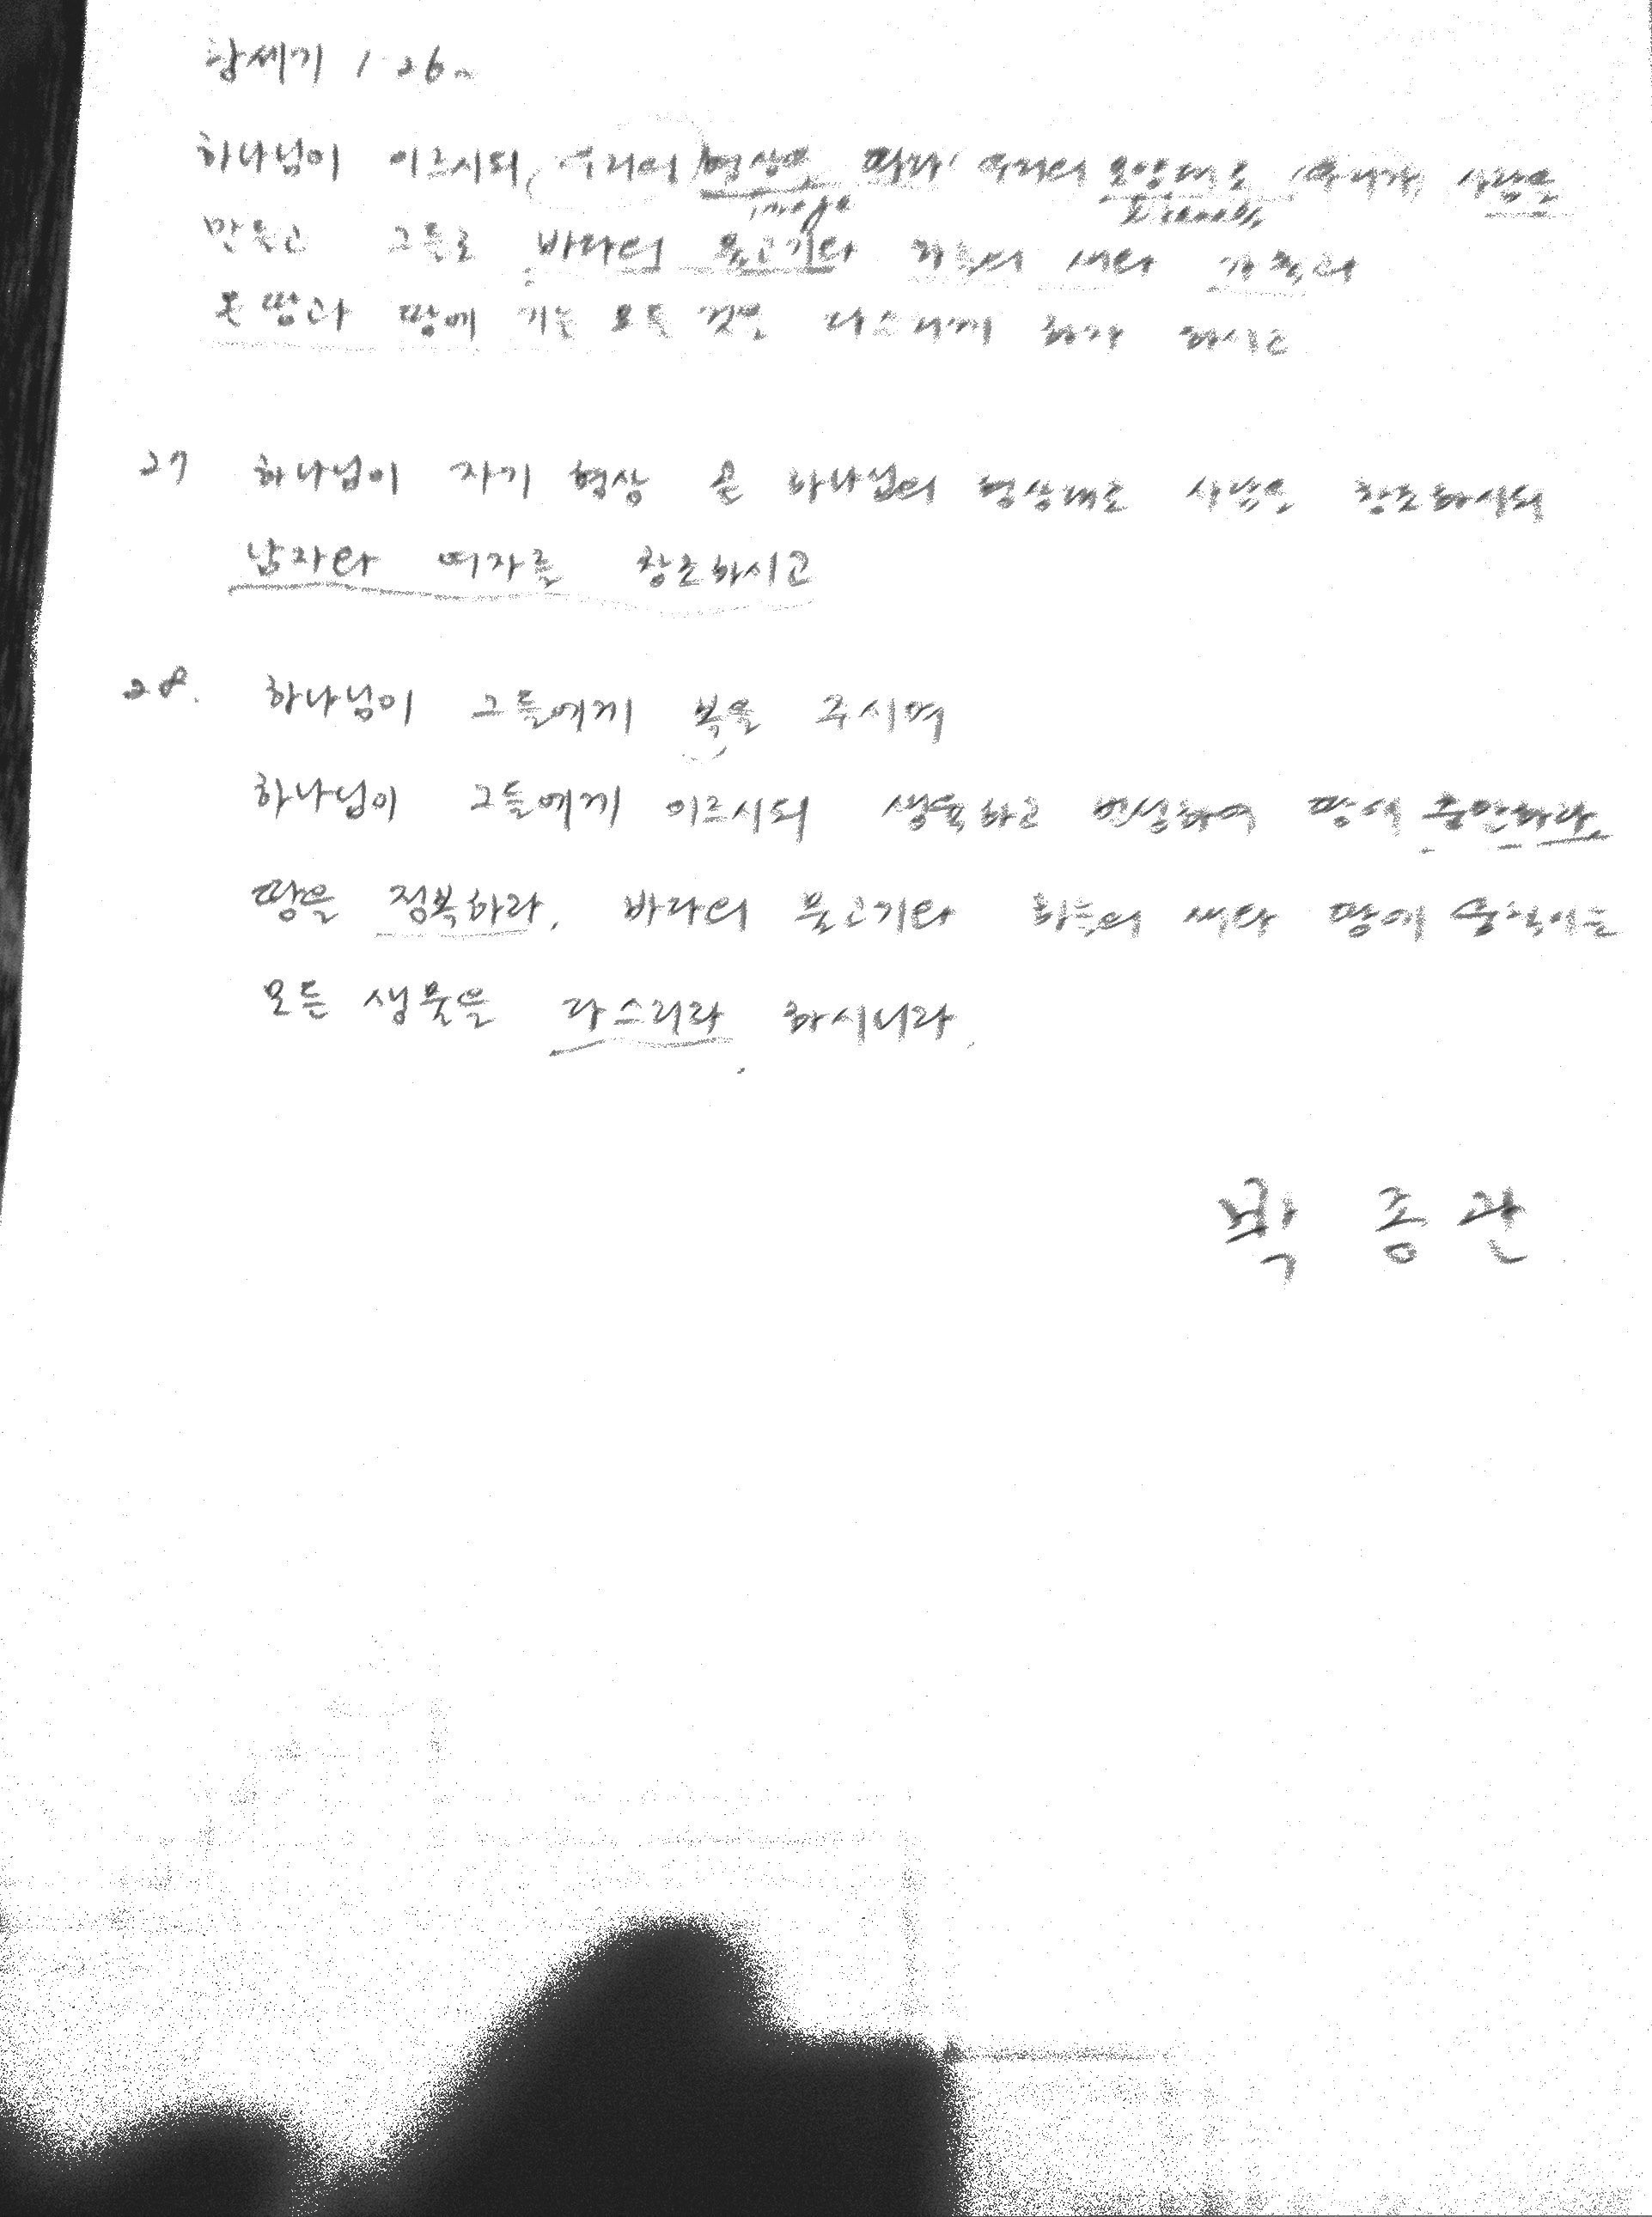 창세기 1:26~
하나님이 이르시되 (우리의) 형상을 따라 우리의 모양대로 (우리가) 사람을
image likeness
만들고 그들로 바다의 물고기와 하늘의 새와 가축과
온 땅과 땅에 기는 모든 것을 다스리게 하자 하시고
27 하나님이 자기 형상 곧 하나님의 형상대로 사람을 창조하시되
남자와 여자를 창조하시고
28. 하나님이 그들에게 복을 주시며
하나님이 그들에게 이르시되 생육하고 번성하여 땅에 충만하라
땅을 정복하라, 바다의 물고기와 하늘의 새와 땅에 움직이는
모든 생물을 다스리라 하시니라.
박 종 관